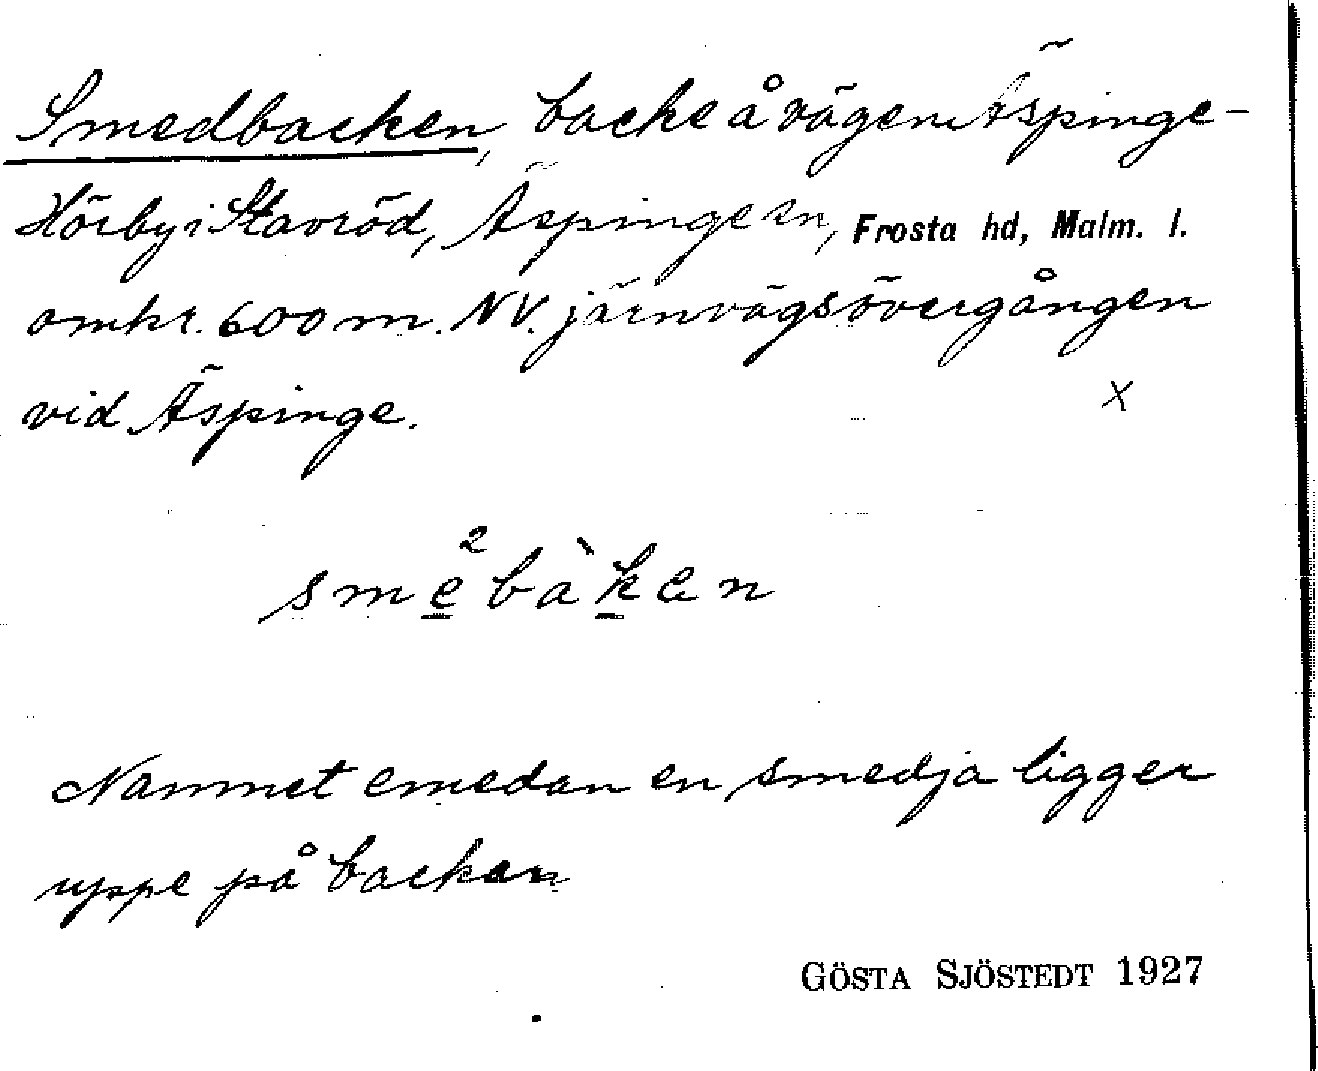 Smedbacken, backe å vägen Äspinge-
Hörby i Stavröd, Äspinge sn, Frosta hd, Malm. l.
omkr. 600 m. NV. järnvägsövergången
vid Äspinge.
x
sme²bàken
Namnet emedan en smedja ligger
uppe på backen
GÖSTA SJÖSTEDT 1927